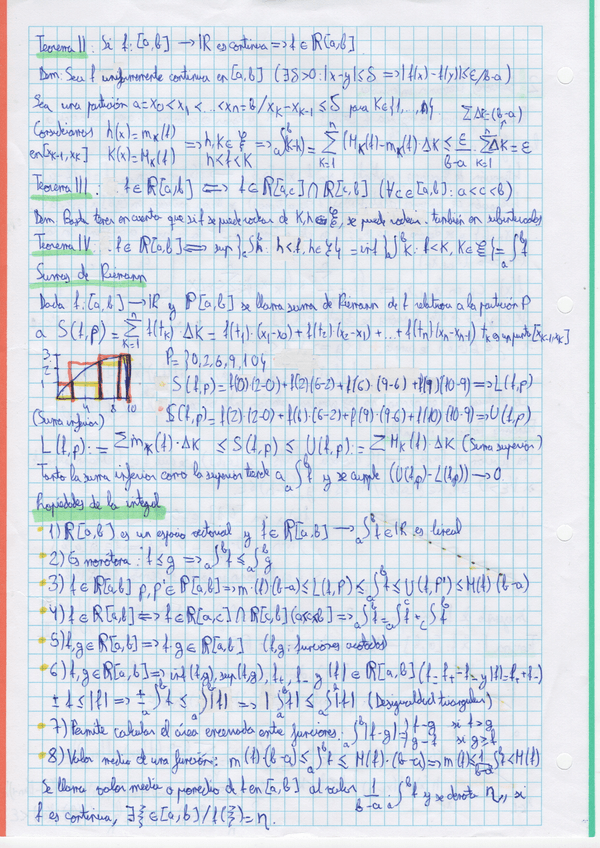 Teorema II: Si f: [a,b] → IR es continua => f ∈ R[a,b]
Dem: Sea f uniformemente continua en [a,b] (∃δ>0: |x-y|≤δ => |f(x)-f(y)|≤ε/b-a)
Sea una partición a=x₀<x₁<...<xn=b / xK-xK-1 ≤ δ para K∈{1,...,n}. ΣΔK=(b-a)
Consideramos h(x)=mK(f) => h,K∈ξ => a∫b(K-h)= Σ K=1 n (MK(f)-mK(f))·ΔK ≤ ε/b-a · Σ K=1 n ΔK=ε
en [xK-1,xK] K(x)=MK(f) h<f<K
Teorema III: f∈R[a,b] <=> f∈R[a,c]∩R[c,b] (∀c∈[a,b]: a<c<b)
Dem: Basta tener en cuenta que si f se puede rodear de K,h∈ξ, se puede rodear también en subintervalos
Teorema IV: f∈R[a,b] <=> sup{a∫b h: h<f, h∈ξ}=inf{a∫b K: f<K, K∈ξ}= a∫b f
Sumas de Riemann
Dada f: [a,b] → IR y P[a,b] se llama suma de Riemann de f relativa a la partición P
a S(f,p)= Σ K=1 n f(tK) ΔK = f(t₁)·(x₁-x₀)+f(t₂)(x₂-x₁)+...+f(tn)(xn-xn-1) tK es un punto [xK-1,xK]
3
2
1
4 8 10
P={0,2,6,9,10}
S(f,p)=f(0)(2-0)+f(2)(6-2)+f(6)·(9-6)+f(9)(10-9)=>L(f,p)
S(f,p)=f(2)(2-0)+f(6)·(6-2)+f(9)·(9-6)+f(10)(10-9)=>U(f,p)
(Suma inferior)
L(f,p):= ΣmK(f)·ΔK ≤ S(f,p) ≤ U(f,p):= ΣMK(f)·ΔK (Suma superior)
Tanto la suma inferior como la superior tiende a a∫b f y se cumple (U(f,p)-L(f,p)) → 0
Propiedades de la integral
1) R[a,b] es un espacio vectorial y f∈R[a,b] → a∫b f∈IR es lineal
2) Es monótona: f≤g => a∫b f ≤ a∫b g
3) f∈R[a,b] p,p'∈P[a,b]=>m(f)(b-a)≤L(f,P)≤ a∫b f ≤U(f,P')≤M(f)(b-a)
4) f∈R[a,b]<=>f∈R[a,c]∩R[c,b](a≤c≤b)=> a∫b f= a∫c f+ c∫b f
5) f,g∈R[a,b]=>f·g∈R[a,b] (f,g: funciones acotadas)
6) f,g∈R[a,b]=>inf(f,g), sup(f,g), f₊, f₋ y |f|∈R[a,b] (f=f₊-f₋ y |f|=f₊+f₋)
±f≤|f| => ± a∫b f ≤ a∫b |f| => | a∫b f| ≤ a∫b |f| (Desigualdad triangular)
7) Permite calcular el área encerrada entre funciones: a∫b |f-g|={ f-g si f>g
g-f si g≥f
8) Valor medio de una función: m(f)·(b-a)≤ a∫b f ≤ M(f)·(b-a)=>m(f)≤ 1/b-a a∫b f ≤M(f)
Se llama valor medio o promedio de f en [a,b] al valor 1/b-a · a∫b f y se denota η, si
f es continua, ∃ξ∈[a,b] / f(ξ)=η.